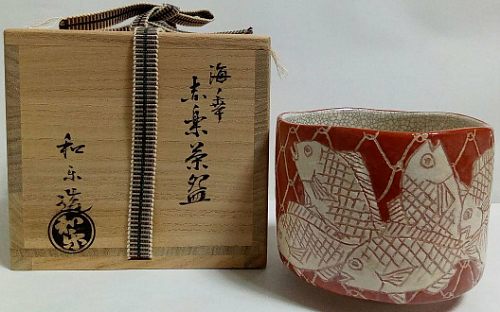 海幸
赤楽茶盌
和楽造